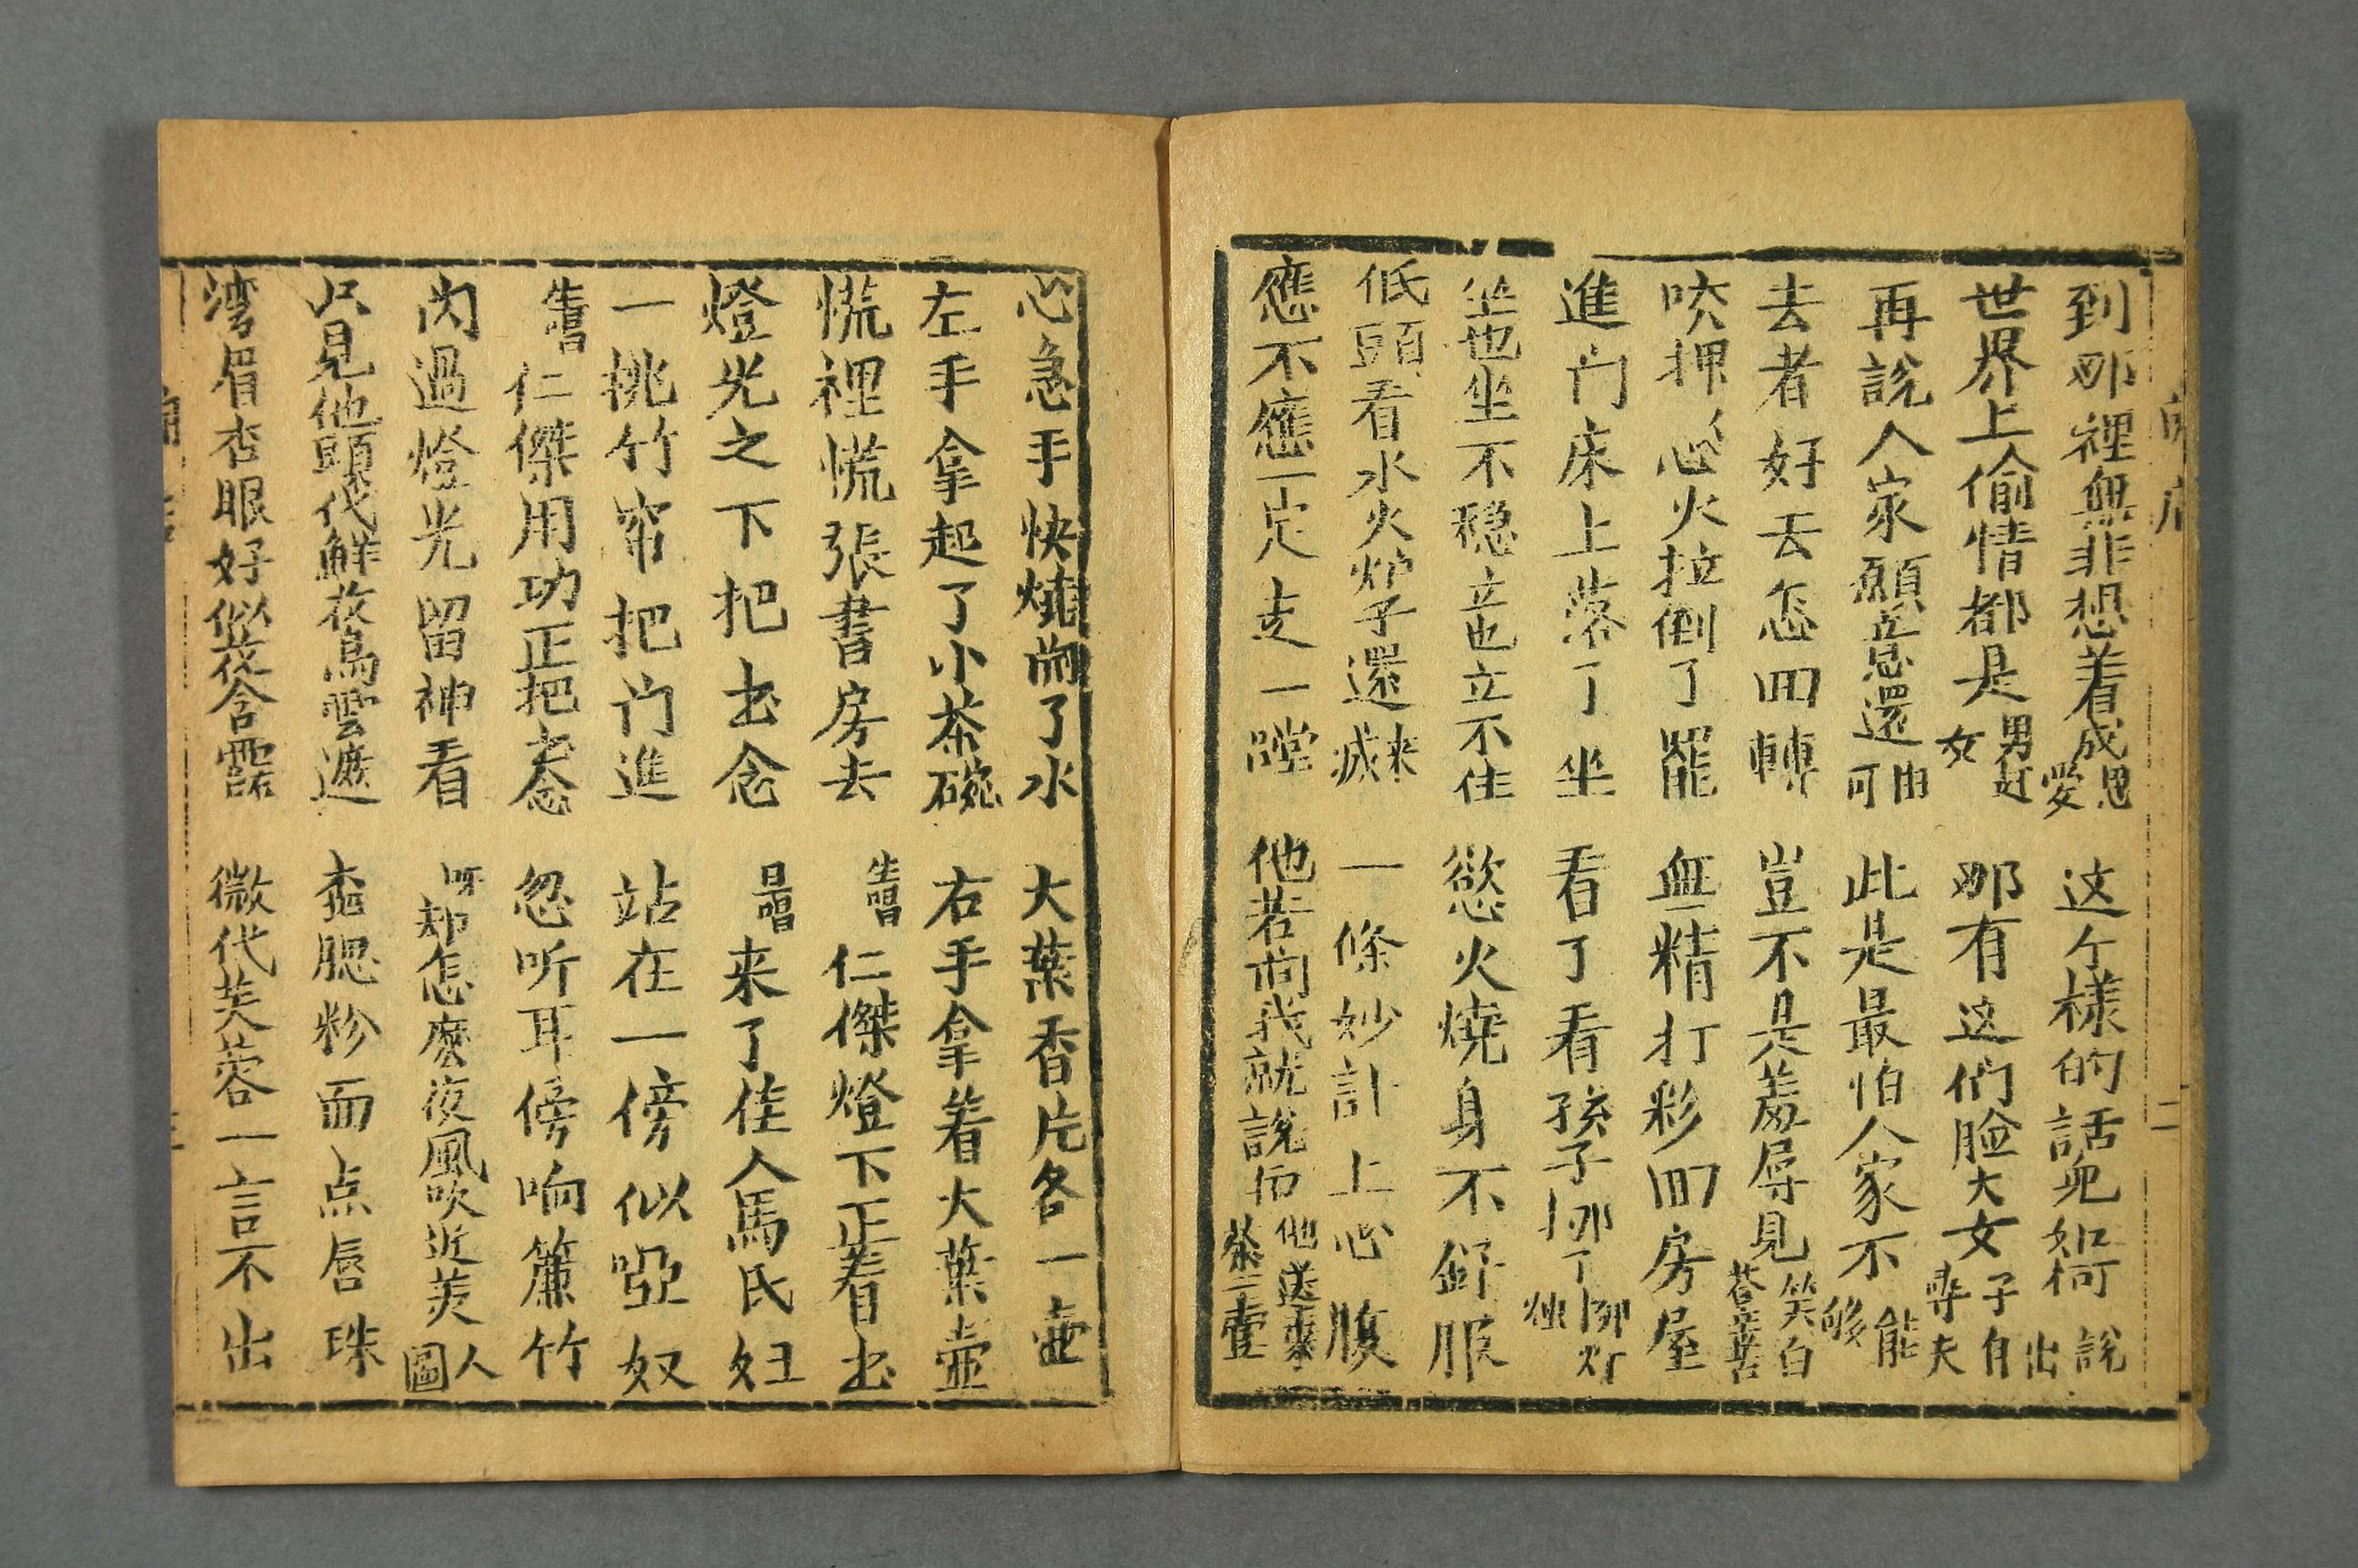 到那裡無非想着成恩愛 这个樣的話兒如何說出
世界上偷情都是男赶女 那有这們脸大女子自尋夫
再說人家願意還由可 此是最怕人家不能够
去者好去怎囬轉 豈不是羞辱見笑白荅
咬押心火拉倒了罷 無精打彩囬房屋
進门床上落了坐 看了看孩子挪了挪灯
坐也坐不稳立也立不住 慾火燒身不舒服
低頭看水火炉子還来滅 一條妙計上心腹
應不應一定走一蹚 他若问我就說与他送來茶一壷
心急手快燒開了水 大葉香片各一壶
左手拿起了小茶碗 右手拿着大葉壶
慌裡慌張書房去 生唱 仁傑燈下正看出
燈光之下把出念 旦唱 来了佳人馬氏妇
一挑竹帘把门進 站在一傍似啞奴
生唱 仁傑用功正把出念 忽听耳傍响簾竹
内過燈光留神看 呀却怎麽夜風吹近美人圖
只見他頭代鮮花烏雲遮 桃腮粉面点唇珠
湾眉杏眼好似衩含露 微代芙蓉一言不出
二